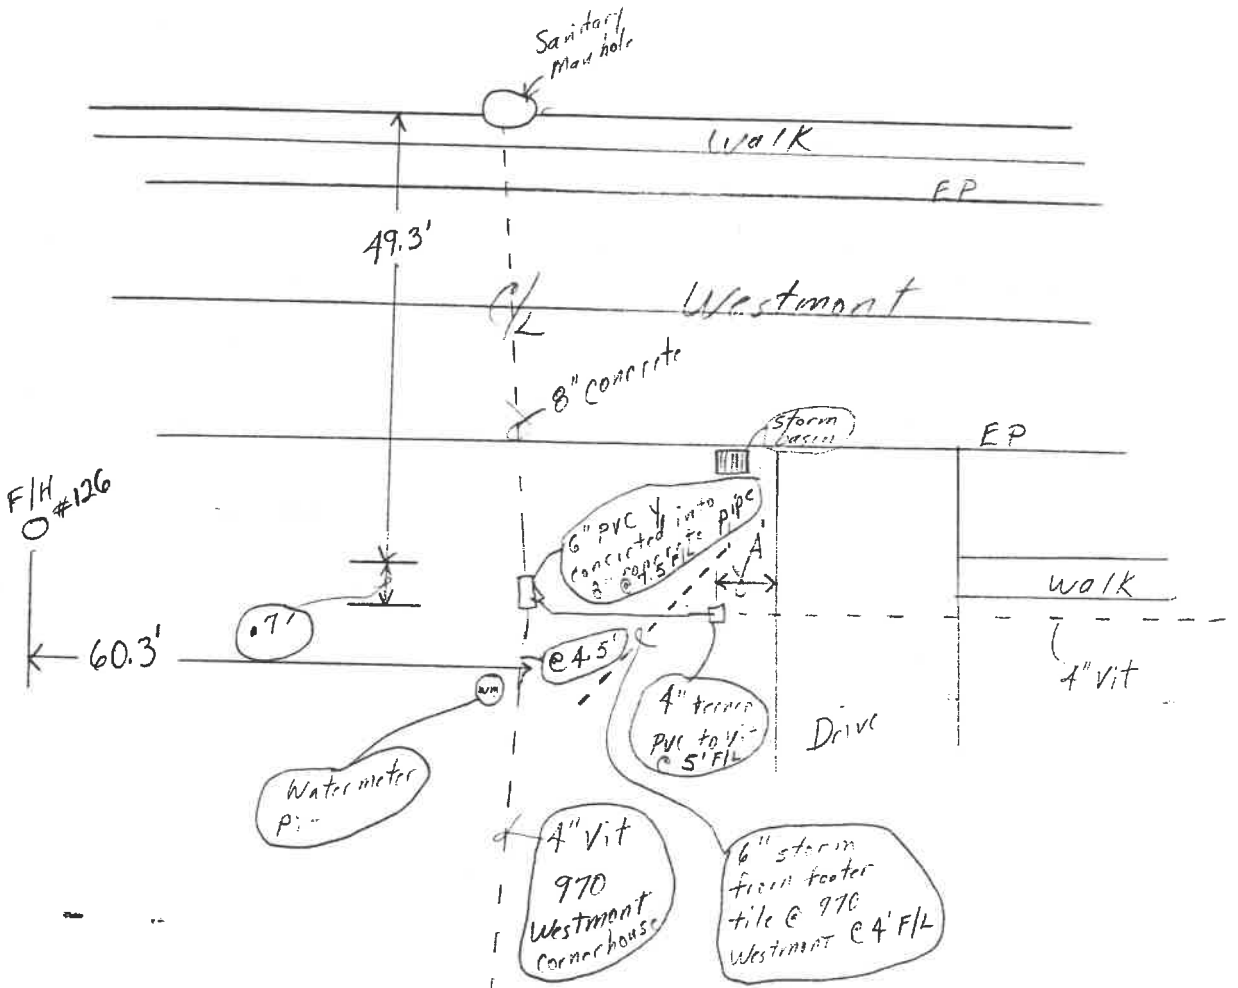 Sanitary
Manhole
Walk
EP
49.3'
C/L
Westmont
8" concrete
storm
basin
EP
F/H
#126
6" PVC Y
into
8" concrete pipe
@ 4.5' F/L
A
Walk
.7'
60.3'
@ 4.5'
4" Vit
WM
4"
PVC to vit
@ 5' F/L
Drive
Water meter
4" Vit
970
Westmont
Cornerhouse
6" storm
from footer
tile @ 970
Westmont @ 4' F/L